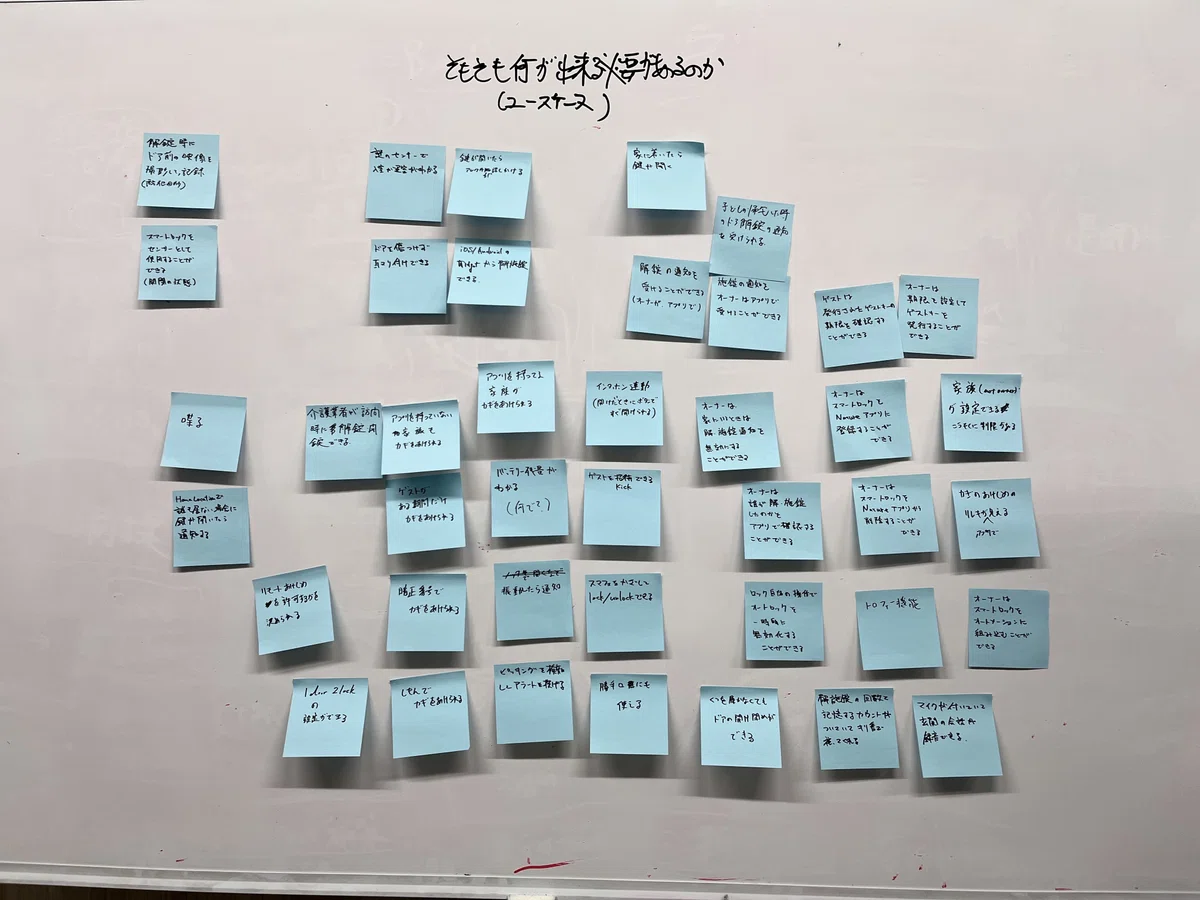 そもそも何が出来る必要があるのか
(ユースケース)
解錠時に
ドア前の映像を
撮影し、記録
スマートロックを
センサーとして
使用することが
できる
(開閉の状態)
鍵のセンサーで
入室か退室かわかる
鍵が開いたら
家に着いたら
鍵が開く
ドアを傷つけず
取り付けできる
iOS/Androidの
から解施錠
できる。
子どもが帰宅した時
のドア解錠の通知
を受けられる。
解錠の通知を
受けることができる
(オーナーが、アプリで)
施錠の通知を
オーナーはアプリで
受けることができる
ゲストは
発行されたゲストキーの
期限を確認する
ことができる
オーナーは
期限を設定して
ゲストキーを
発行することが
できる
喋る
介護業者が訪問
時に解錠 開
錠できる。
アプリを持っていない
家族も
カギをあけられる
アプリを持ってる
家族が
カギをあけられる
インターホン連動
(開けたときにボタンで
すぐ開けられる)
オーナーは
家にいるときは
解・施錠通知を
無効にする
ことができる
オーナーは
スマートロックを
Natureアプリに
登録することが
できる
家族(not owner)
が設定できる
ことに制限がある
Home Locationで
誰も居ない場合に
鍵が開いたら
通知する
ゲストが
ある期間だけ
カギをあけられる
バッテリー残量が
わかる
(何で?)
ゲストを招待できる
kick
オーナーは
誰が解・施錠
したのかを
アプリで確認する
ことができる
オーナーは
スマートロックを
Natureアプリから
削除することが
できる
カギのあけしめの
りれきが見える
アプリで
リモートあけしめ
を許可するかを
決められる
暗証番号で
カギをあけられる
振動したら通知
スマフォをかざして
lock/unlockできる
ロック自体の操作で
オートロックを
一時的に
無効化する
ことができる
トロフィー機能
オーナーは
スマートロックを
オートメーションに
組み込むことが
できる
1 door 2 lock
の
設定ができる
しもんで
カギをあけられる
ピッキングを検知
しアラートを挙げる
勝手口にも
使える
くつを履かなくても
ドアの開け閉めが
できる
解施錠の回数を
記憶するカウントが
ついていて
マイクが付いていて
玄関の会話が
録音できる。